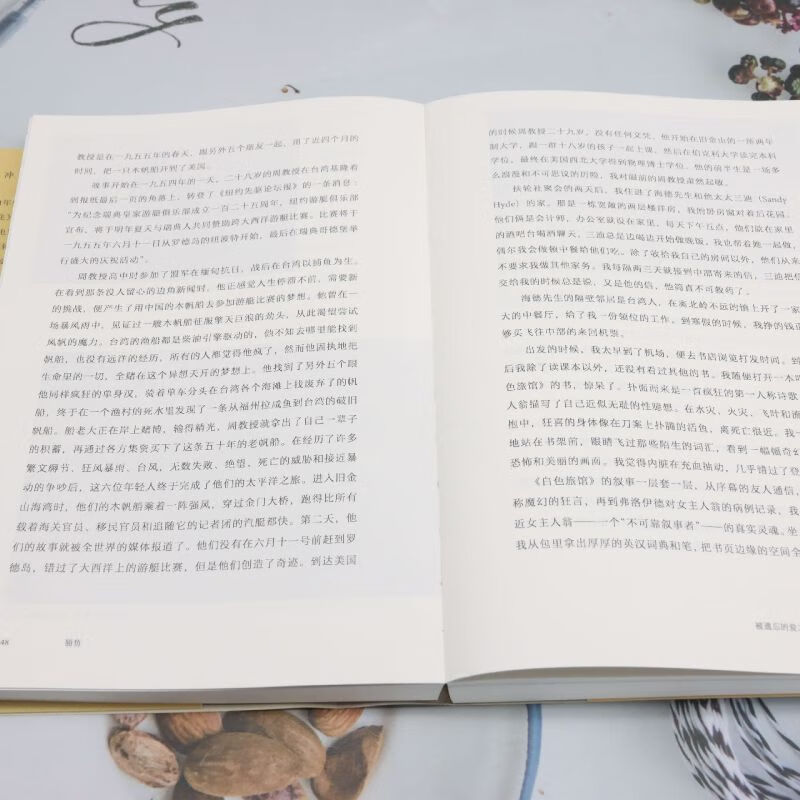 教授是在一九五五年的春天，跟另外五个朋友一起，用了近四个月的
时间，把一只木帆船开到了美国。
故事开始在一九五四年的一天，二十八岁的周教授在台湾基隆看
到报纸最后一页的角落上，转登了《纽约先驱论坛报》的一条消息：
“为纪念瑞典皇家游艇俱乐部成立一百二十五周年，纽约游艇俱乐部
宣布，将于明年夏天与瑞典人共同赞助跨大西洋游艇比赛。比赛将于
一九五五年六月十一日从罗德岛的纽波特开始，最后在瑞典哥德堡举
行盛大的庆祝活动”。
周教授高中时参加了盟军在缅甸抗日，战后在台湾以捕鱼为生。
在看到那条没人留心的边角新闻时，他正感觉人生停滞不前，需要新
的挑战，便产生了用中国的木帆船去参加游艇比赛的梦想。他曾在一
场暴风雨中，见证过一艘木帆船征服擎天巨浪的劲头，从此渴望尝试
风帆的魔力。台湾的渔船都是柴油引擎驱动的，他不知去哪里能找到
帆船，也没有远洋的经历，所有的人都觉得他疯了，然而他固执地把
生命里的一切，全赌在这个异想天开的梦想上。他找到了另外五个跟
他同样疯狂的单身汉，骑着单车分头在台湾各个海滩上找废弃了的帆
船，终于在一个渔村的死水里发现了一条从福州拉咸鱼到台湾的破旧
帆船。船老大正在岸上赌博，输得精光，周教授就拿出了自己一辈子
的积蓄，再通过各方集资买下了这条五十年的老帆船。在经历了许多
繁文缛节、狂风暴雨、台风，无数失败、绝望，死亡的威胁和接近暴
动的争吵后，这六位年轻人终于完成了他们的太平洋之旅。进入旧金
山海湾时，他们的木帆船乘着一阵强风，穿过金门大桥，跑得比所有
载着海关官员、移民官员和追随它的记者团的汽艇都快。第二天，他
们的故事就被全世界的媒体报道了。他们没有在六月十一号前赶到罗
德岛，错过了大西洋上的游艇比赛，但是他们创造了奇迹。到达美国
48
猫鱼
的时候周教授二十九岁，没有任何文凭，他开始在旧金山的一所两年
制大学，跟一群十八岁的孩子一起上课，然后在伯克利大学读完本科
学位，最终在美国西北大学得到物理博士学位。他的前半生是一场多
么浪漫和不可思议的历险，我对眼前的周教授肃然起敬。
扶轮社聚会的两天后，我住进了海德先生和他太太三迪（Sandy
Hyde）的家，那是一栋宽敞的两层楼洋房，我的卧房窗对着后花园。
他们俩是会计师，办公室就设在家里，每天下午五点，他们就在家里
的酒吧台喝酒聊天，三迪总是边喝边开始做晚饭，我也帮着她一起做，
偶尔我会做顿中餐给他们吃。除了收拾我自己的房间以外，他们从来
不要求我做其他家务。我每隔两三天就接到中部寄来的信，三迪把信
交给我的时候总是说，又是他的信，他简直不可救药了。
海德先生的隔壁邻居是台湾人，在离北岭不远的镇上开了一家
大的中餐厅，给了我一份领位的工作。到寒假的时候，我挣的钱正
够买飞往中部的来回机票。
出发的时候，我太早到了机场，便去书店浏览打发时间。到
后我除了读课本以外，还没有看过其他的书。我随便打开一本叫
色旅馆》的书，惊呆了。扑面而来是一首疯狂的第一人称诗歌
人翁描写了自己近似无耻的性臆想。在水灾、火灾、飞叶和渔
抱中，狂喜的身体像在刀案上扑腾的活鱼，离死亡很近。我一
地站在书架前，眼睛飞过那些陌生的词汇，看到一幅幅奇幻
恐怖和美丽的画面。我觉得内脏在充血抽动，几乎错过了登
《白色旅馆》的叙事一层套一层，从序幕的友人通信，
称魔幻的狂言，再到弗洛伊德对女主人翁的病例记录，我
近女主人翁——一个“不可靠叙事者”——的真实灵魂。坐
我从包里拿出厚厚的英汉词典和笔，把书页边缘的空间全
被遗忘的爱